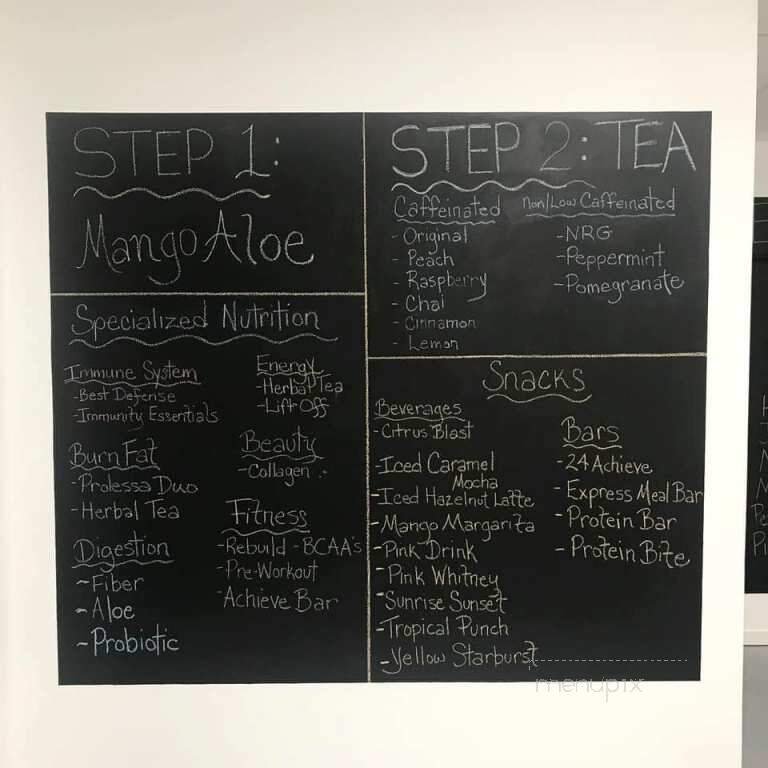 STEP 1:
Mango Aloe
Specialized Nutrition
Immune System
-Best Defense
-Immunity Essentials
Burn Fat
-Prolessa Duo
-Herbal Tea
Digestion
~Fiber
~Aloe
~Probiotic
Energy
-Herbal Tea
-Lift Off
Beauty
-Collagen
Fitness
-Rebuild -BCAA's
-Pre-Workout
-Achieve Bar
STEP 2: TEA
Caffeinated
- Original
- Peach
- Raspberry
- Chai
- Cinnamon
- Lemon
Non/Low Caffeinated
-NRG
-Peppermint
-Pomegranate
Snacks
Beverages
-Citrus Blast
-Iced Caramel
Mocha
-Iced Hazelnut Latte
-Mango Margarita
-Pink Drink
-Pink Whitney
-Sunrise Sunset
-Tropical Punch
-Yellow Starburst
Bars
-24 Achieve
-Express Meal Bar
-Protein Bar
-Protein Bite
menupix